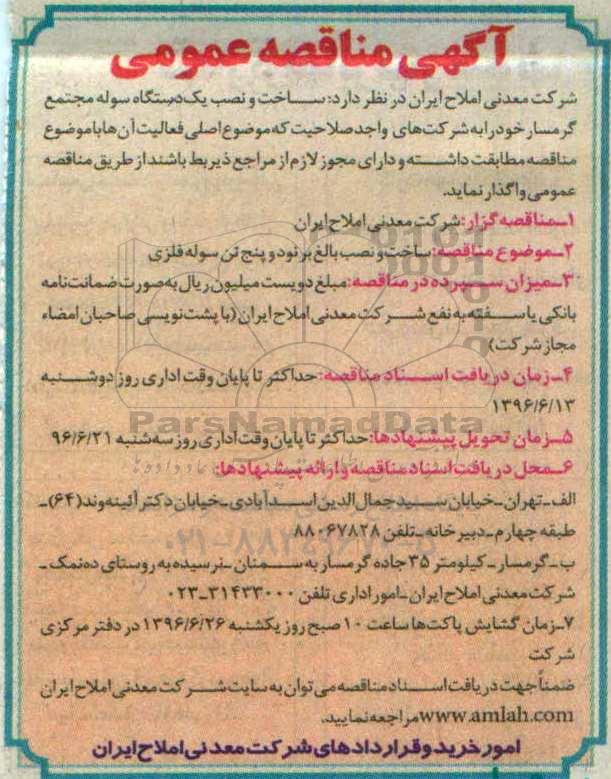 آگهی مناقصه عمومی
شرکت معدنی املاح ایران در نظر دارد: ساخت و نصب یک دستگاه سوله مجتمع
گرمسار خود را به شرکت‌های واجد صلاحیت که موضوع اصلی فعالیت آن‌ها با موضوع
مناقصه مطابقت داشته و دارای مجوز لازم از مراجع ذیربط باشند از طریق مناقصه
عمومی واگذار نماید.
۱ـ مناقصه گزار: شرکت معدنی املاح ایران
۲ـ موضوع مناقصه: ساخت و نصب بالغ بر نود و پنج تن سوله فلزی
۳ـ میزان سپرده در مناقصه: مبلغ دویست میلیون ریال به صورت ضمانت‌نامه
بانکی یا سفته به نفع شرکت معدنی املاح ایران (با پشت‌نویسی صاحبان امضاء
مجاز شرکت)
۴ـ زمان دریافت اسناد مناقصه: حداکثر تا پایان وقت اداری روز دوشنبه
۱۳۹۶/۶/۱۳
ParsNamadData
۵ـ زمان تحویل پیشنهادها: حداکثر تا پایان وقت اداری روز سه‌شنبه ۹۶/۶/۲۱
۶ـ محل دریافت اسناد مناقصه و ارائه پیشنهادها:
الف ـ تهران ـ خیابان سیدجمال‌الدین اسدآبادی ـ خیابان دکتر آئینه‌وند (۶۴) ـ
طبقه چهارم ـ دبیرخانه ـ تلفن ۸۸۰۶۷۸۲۸
ب ـ گرمسار ـ کیلومتر ۳۵ جاده گرمسار به سمنان ـ نرسیده به روستای ده‌نمک ـ
شرکت معدنی املاح ایران ـ امور اداری تلفن ۳۱۴۳۳۰۰۰ـ۰۲۳
۷ـ زمان گشایش پاکت‌ها ساعت ۱۰ صبح روز یکشنبه ۱۳۹۶/۶/۲۶ در دفتر مرکزی
شرکت
ضمناً جهت دریافت اسناد مناقصه می‌توان به سایت شرکت معدنی املاح ایران
www.amlah.com مراجعه نمایید.
امور خرید و قراردادهای شرکت معدنی املاح ایران